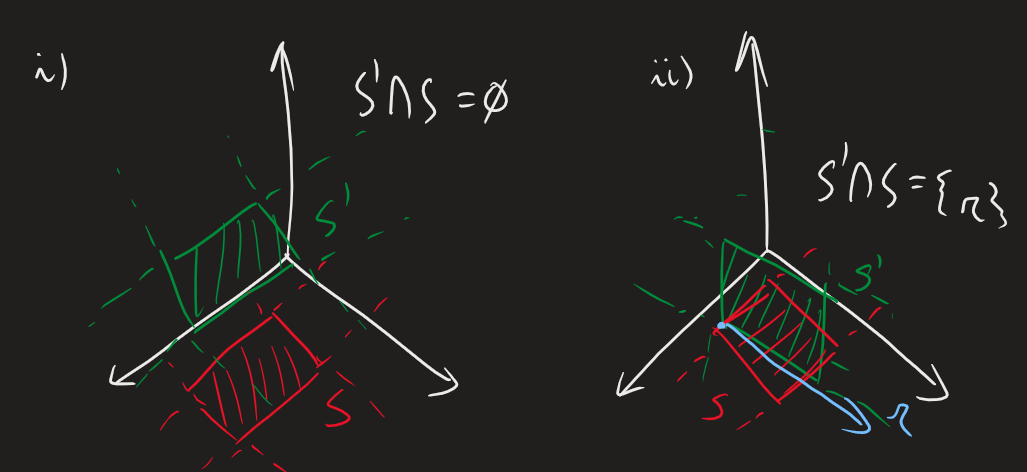 i)
S'∩S=∅
S'
S
ii)
S'∩S={r}
S'
S
r